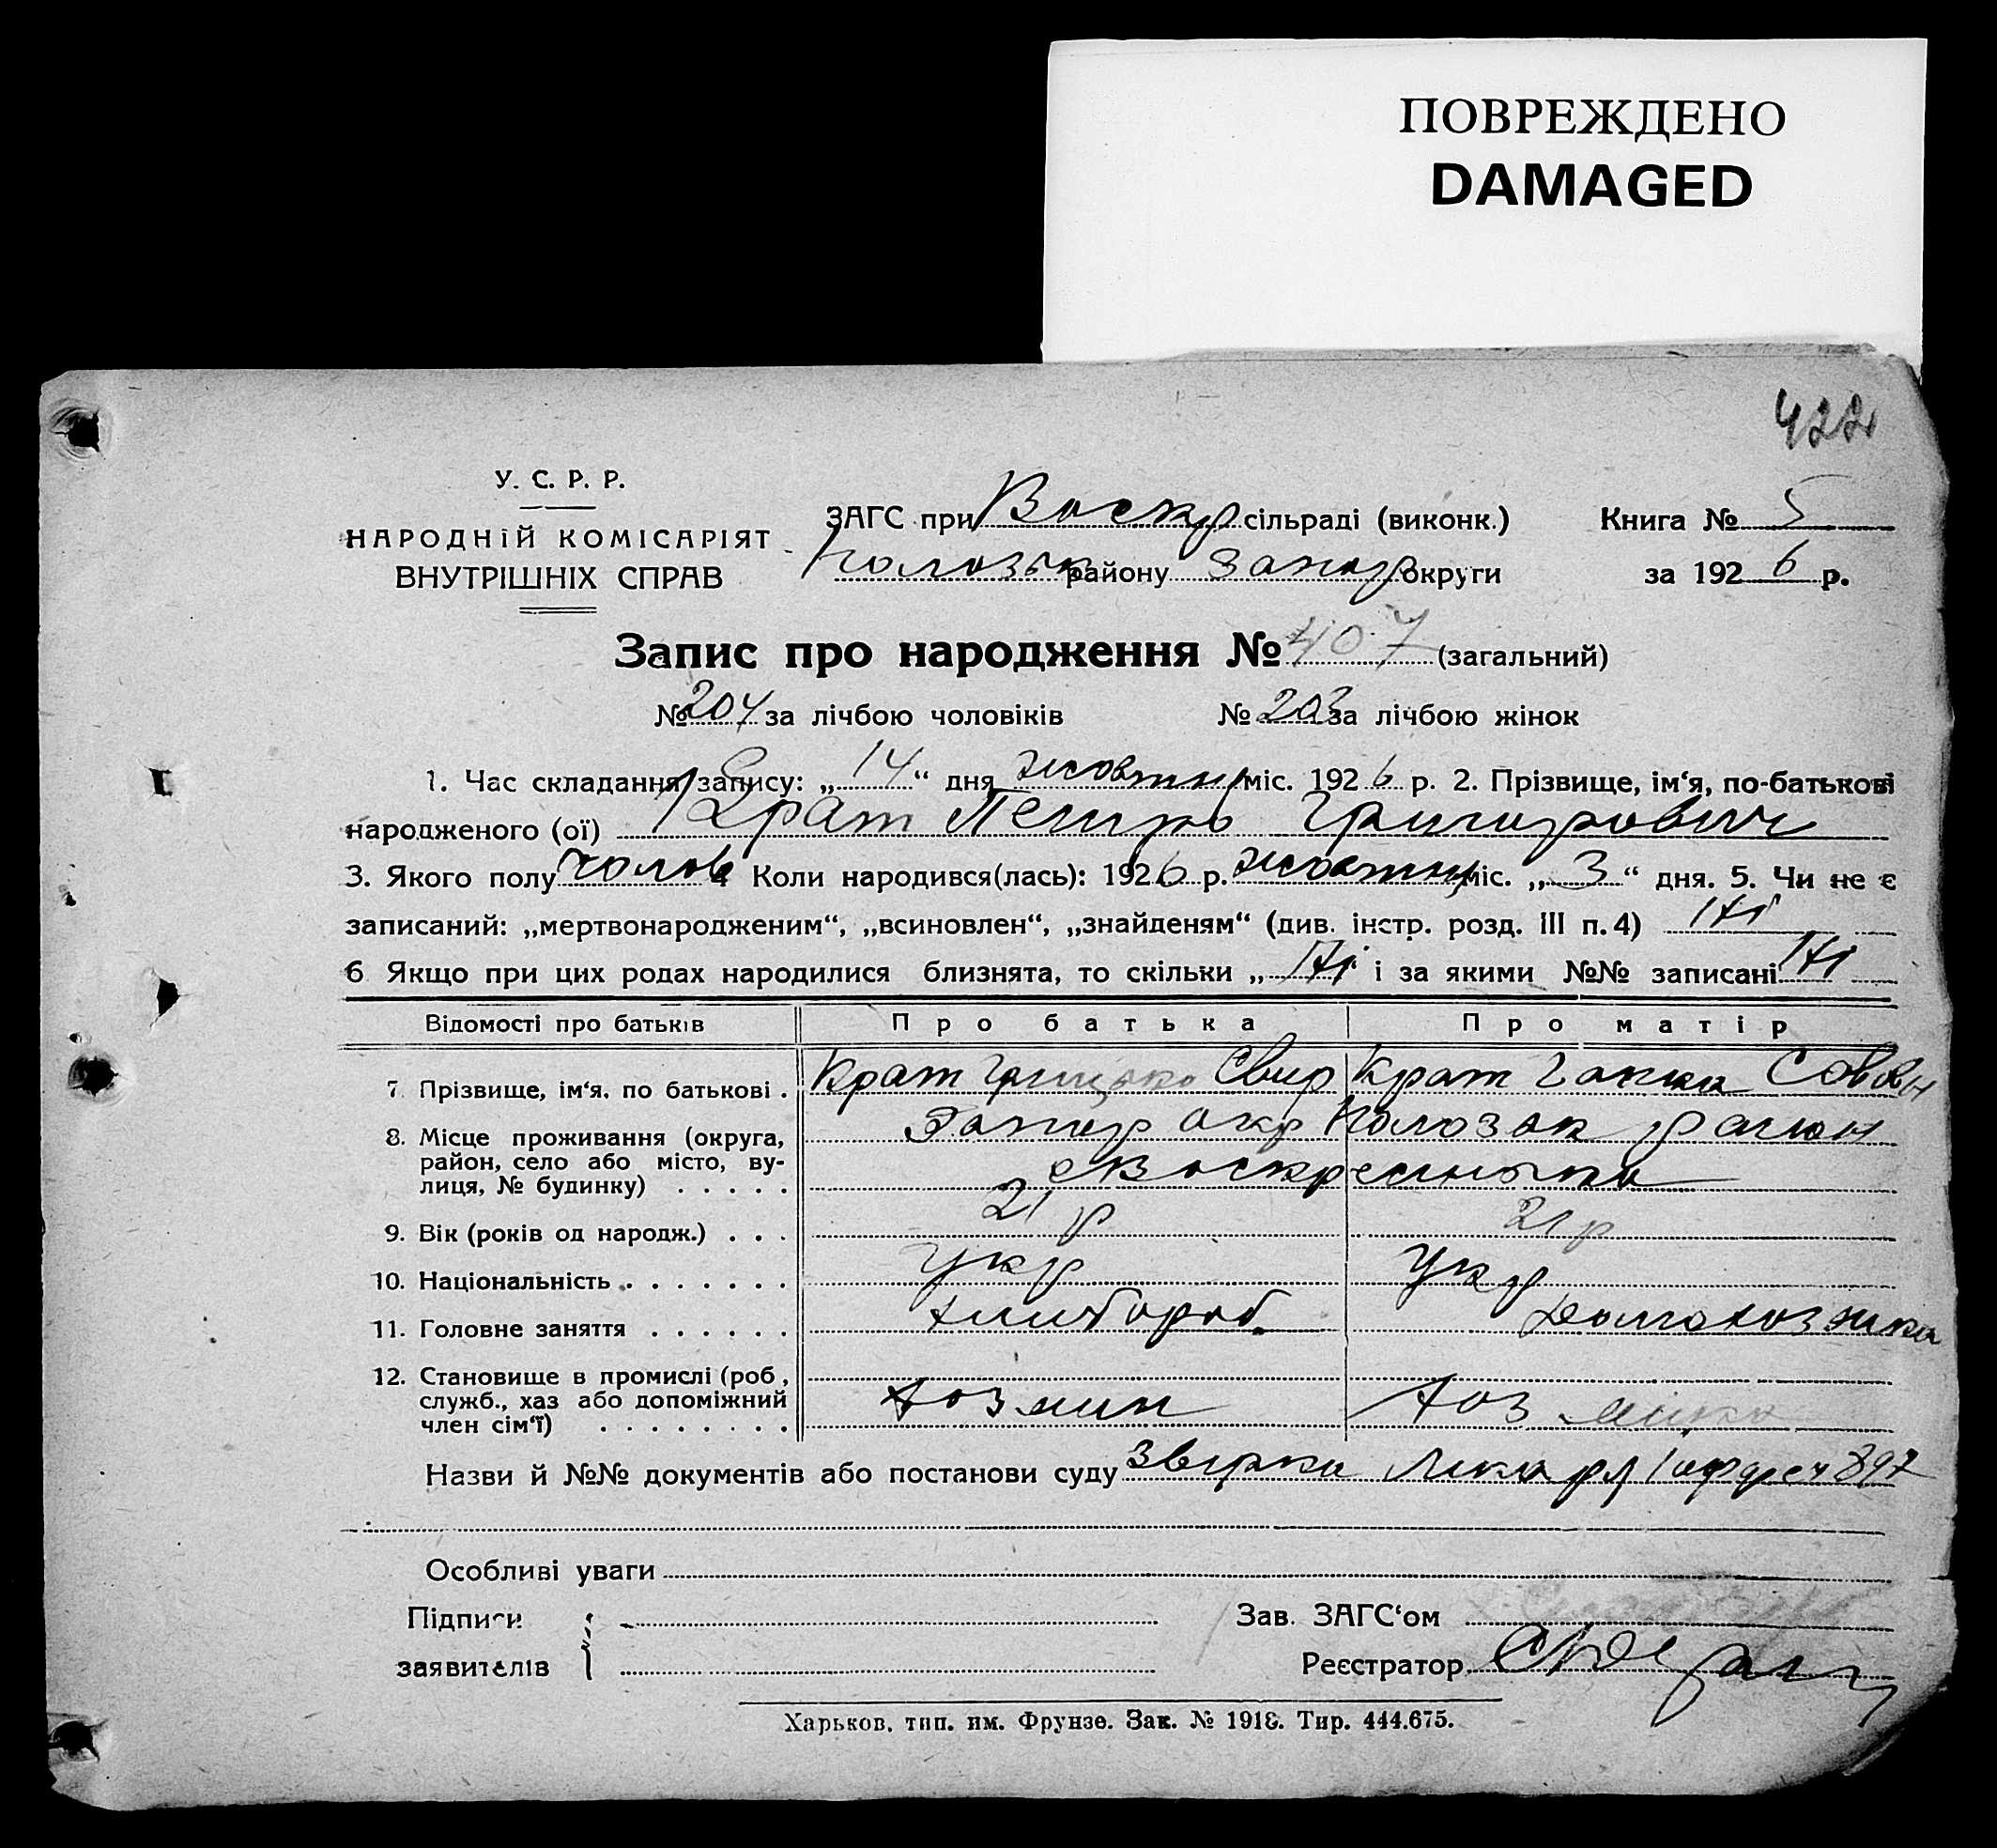 ПОВРЕЖДЕНО
DAMAGED
422
У. С. Р. Р.
НАРОДНІЙ КОМІСАРІЯТ
ВНУТРІШНІХ СПРАВ
ЗАГС при Воскр сільраді (виконк.) Книга № 5
району Запор округи за 1926 р.
Запис про народження № 407 (загальний)
№ 204 за лічбою чоловіків № 203 за лічбою жінок
1. Час складання запису: „14“ дня жовтня міс. 1926 р. 2. Прізвище, ім‘я, по-батькові
народженого (ої) Крат Петро Григорович
3. Якого полу чолов 4 Коли народився(лась): 1926 р. жовтня міс. „3“ дня. 5. Чи не є
записаний: „мертвонародженим“, „всиновлен“, „знайденям“ (див. інстр. розд. III п. 4) Ні
6 Якщо при цих родах народилися близнята, то скільки „Ні“ і за якими №№ записані Ні
Відомості про батьків Про батька Про матір
7. Прізвище, ім‘я, по батькові . Крат Грицько Свир Крат Ганна Сов
8. Місце проживання (округа, Запор окр район
район, село або місто, ву-
лиця, № будинку) . . . . . с Воскресенька
9. Вік (років од народж.) . . . 21 р 21 р
10. Національність . . . . . . . Укр Укр
11. Головне заняття . . . . . . хлібороб домохозяйка
12. Становище в промислі (роб.,
служб., хаз або допоміжний хозяин хозяйка
член сім‘ї) . . . . . . . .
Назви й №№ документів або постанови суду звірка 897
Особливі уваги
Підписи Зав. ЗАГС‘ом
заявителів Реєстратор
Харьков, тип. им. Фрунзе. Зак. № 1918. Тир. 444.675.